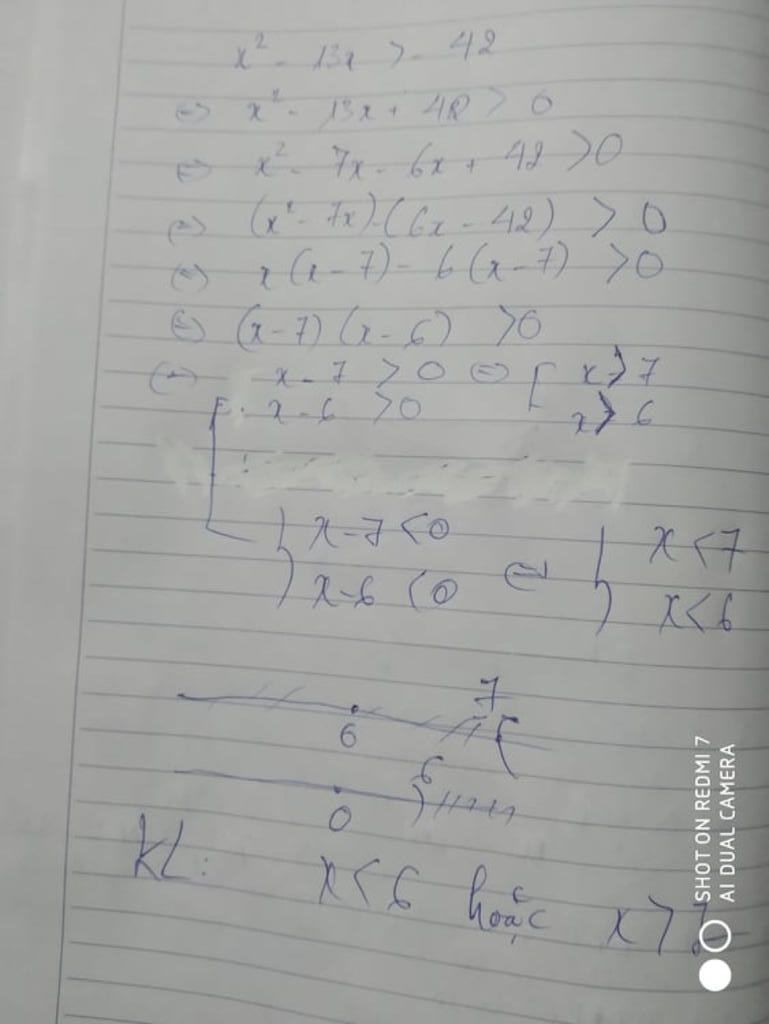 x² - 13x > - 42
⇔ x² - 13x + 42 > 0
⇔ x² - 7x - 6x + 42 > 0
⇔ (x² - 7x) - (6x - 42) > 0
⇔ x (x - 7) - 6 (x - 7) > 0
⇔ (x - 7) (x - 6) > 0
⇔ x - 7 > 0 ⇔ [ x > 7
x - 6 > 0 x > 6
{ x - 7 < 0 ⇔ { x < 7
x - 6 < 0 x < 6
7
6
6
0
KL: x < 6 hoặc x > 7
SHOT ON REDMI 7
AI DUAL CAMERA